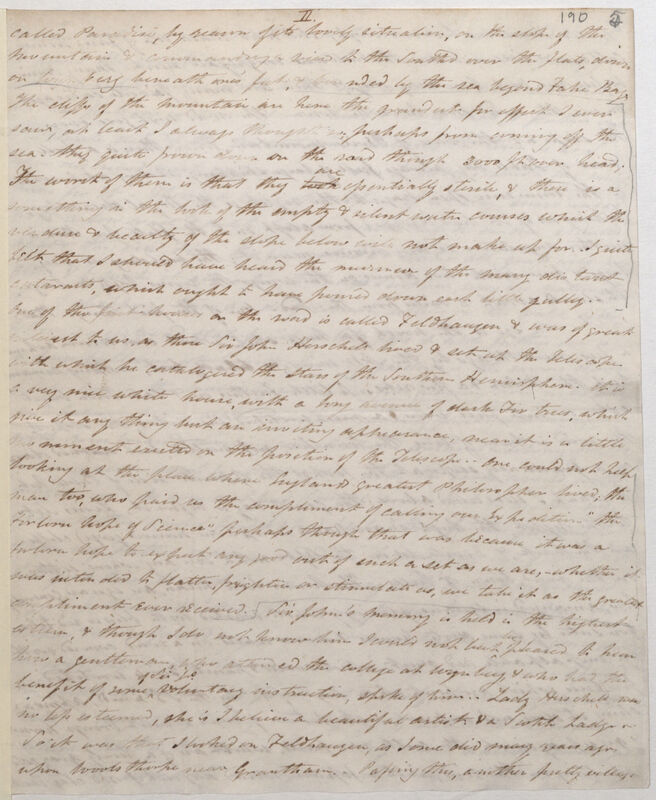 II.
190 5
called Paradise, by reason of its lovely situation, on the slope of the
mountain & commanding view to the South over the flats, down
on beneath one's feet, & bounded by the sea beyond False Bay.
The cliffs of the mountain are here the grandest for effect I ever
saw, at least I always thought so, perhaps from coming off the
sea. they quite frown down on the road though 3000 ft over head.
The worst of them is that they are essentially sterile, & there is a
something in the look of the empty & silent water courses which the
verdure & beauty of the slope below will not make up for. I quite
felt that I should have heard the murmur of the many distant
cataracts, which ought to have poured down each little gulley.
One of the houses on the road is called Feldhausen & was of great
interest to us, as there Sir John Herschell lived & set up the telescope
with which he catalogered the stars of the Southern Hemisphere. it is
a very nice white house, with a long avenue of dark Fir trees, which
give it any thing but an inviting appearance, near it is a little
monument erected on the position of the Telescope. one could not help
looking at the place where England's greatest Philosopher lived; the
man too, who paid us the compliment of calling our Expedition "the
Forlorn hope of Science", perhaps though that was because it was a
forlorn hope to expect any good out of such a set as we are, whether it
was intended to flatter, frighten or stimulate us, we take it as the greatest
compliment ever received. Sir John's memory is held in the highest
esteem, & though I do not know him I could not but be pleased to hear
how a gentleman, who attended the college at Wynberg & who had the
benefit of some of Sir Js voluntary instruction, spoke of him. Lady Herschell was
no less esteemed, she is I believe a beautiful artist & a Scotch Lady.
So it was that I looked on Feldhausen, as I once did many years ago,
upon Woolsthorpe near Grantham. Passing this, another pretty village